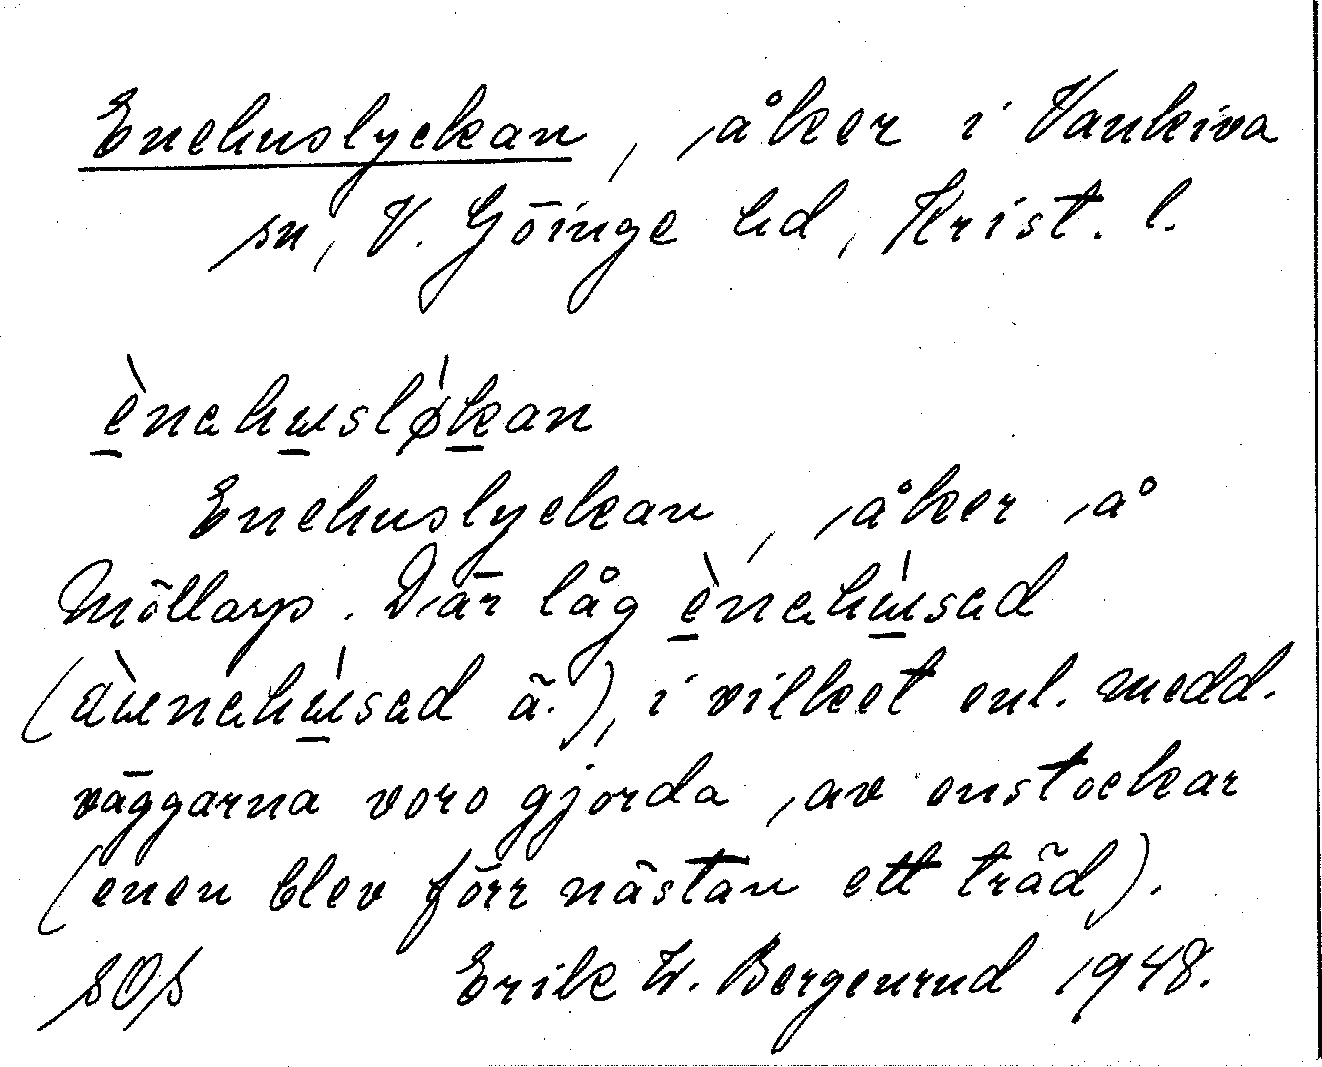 Enehuslyckan, åker i Vankiva
sn, V. Göinge hd, Krist. l.
ènahusløkan
Enehuslyckan, åker å
Möllarp. Där låg ènahusad
(äunahusad ä.), i vilket enl. medd.
väggarna voro gjorda av enstockar
(enen blev förr nästan ett träd).
SOS Erik W. Bergenrud 1948.